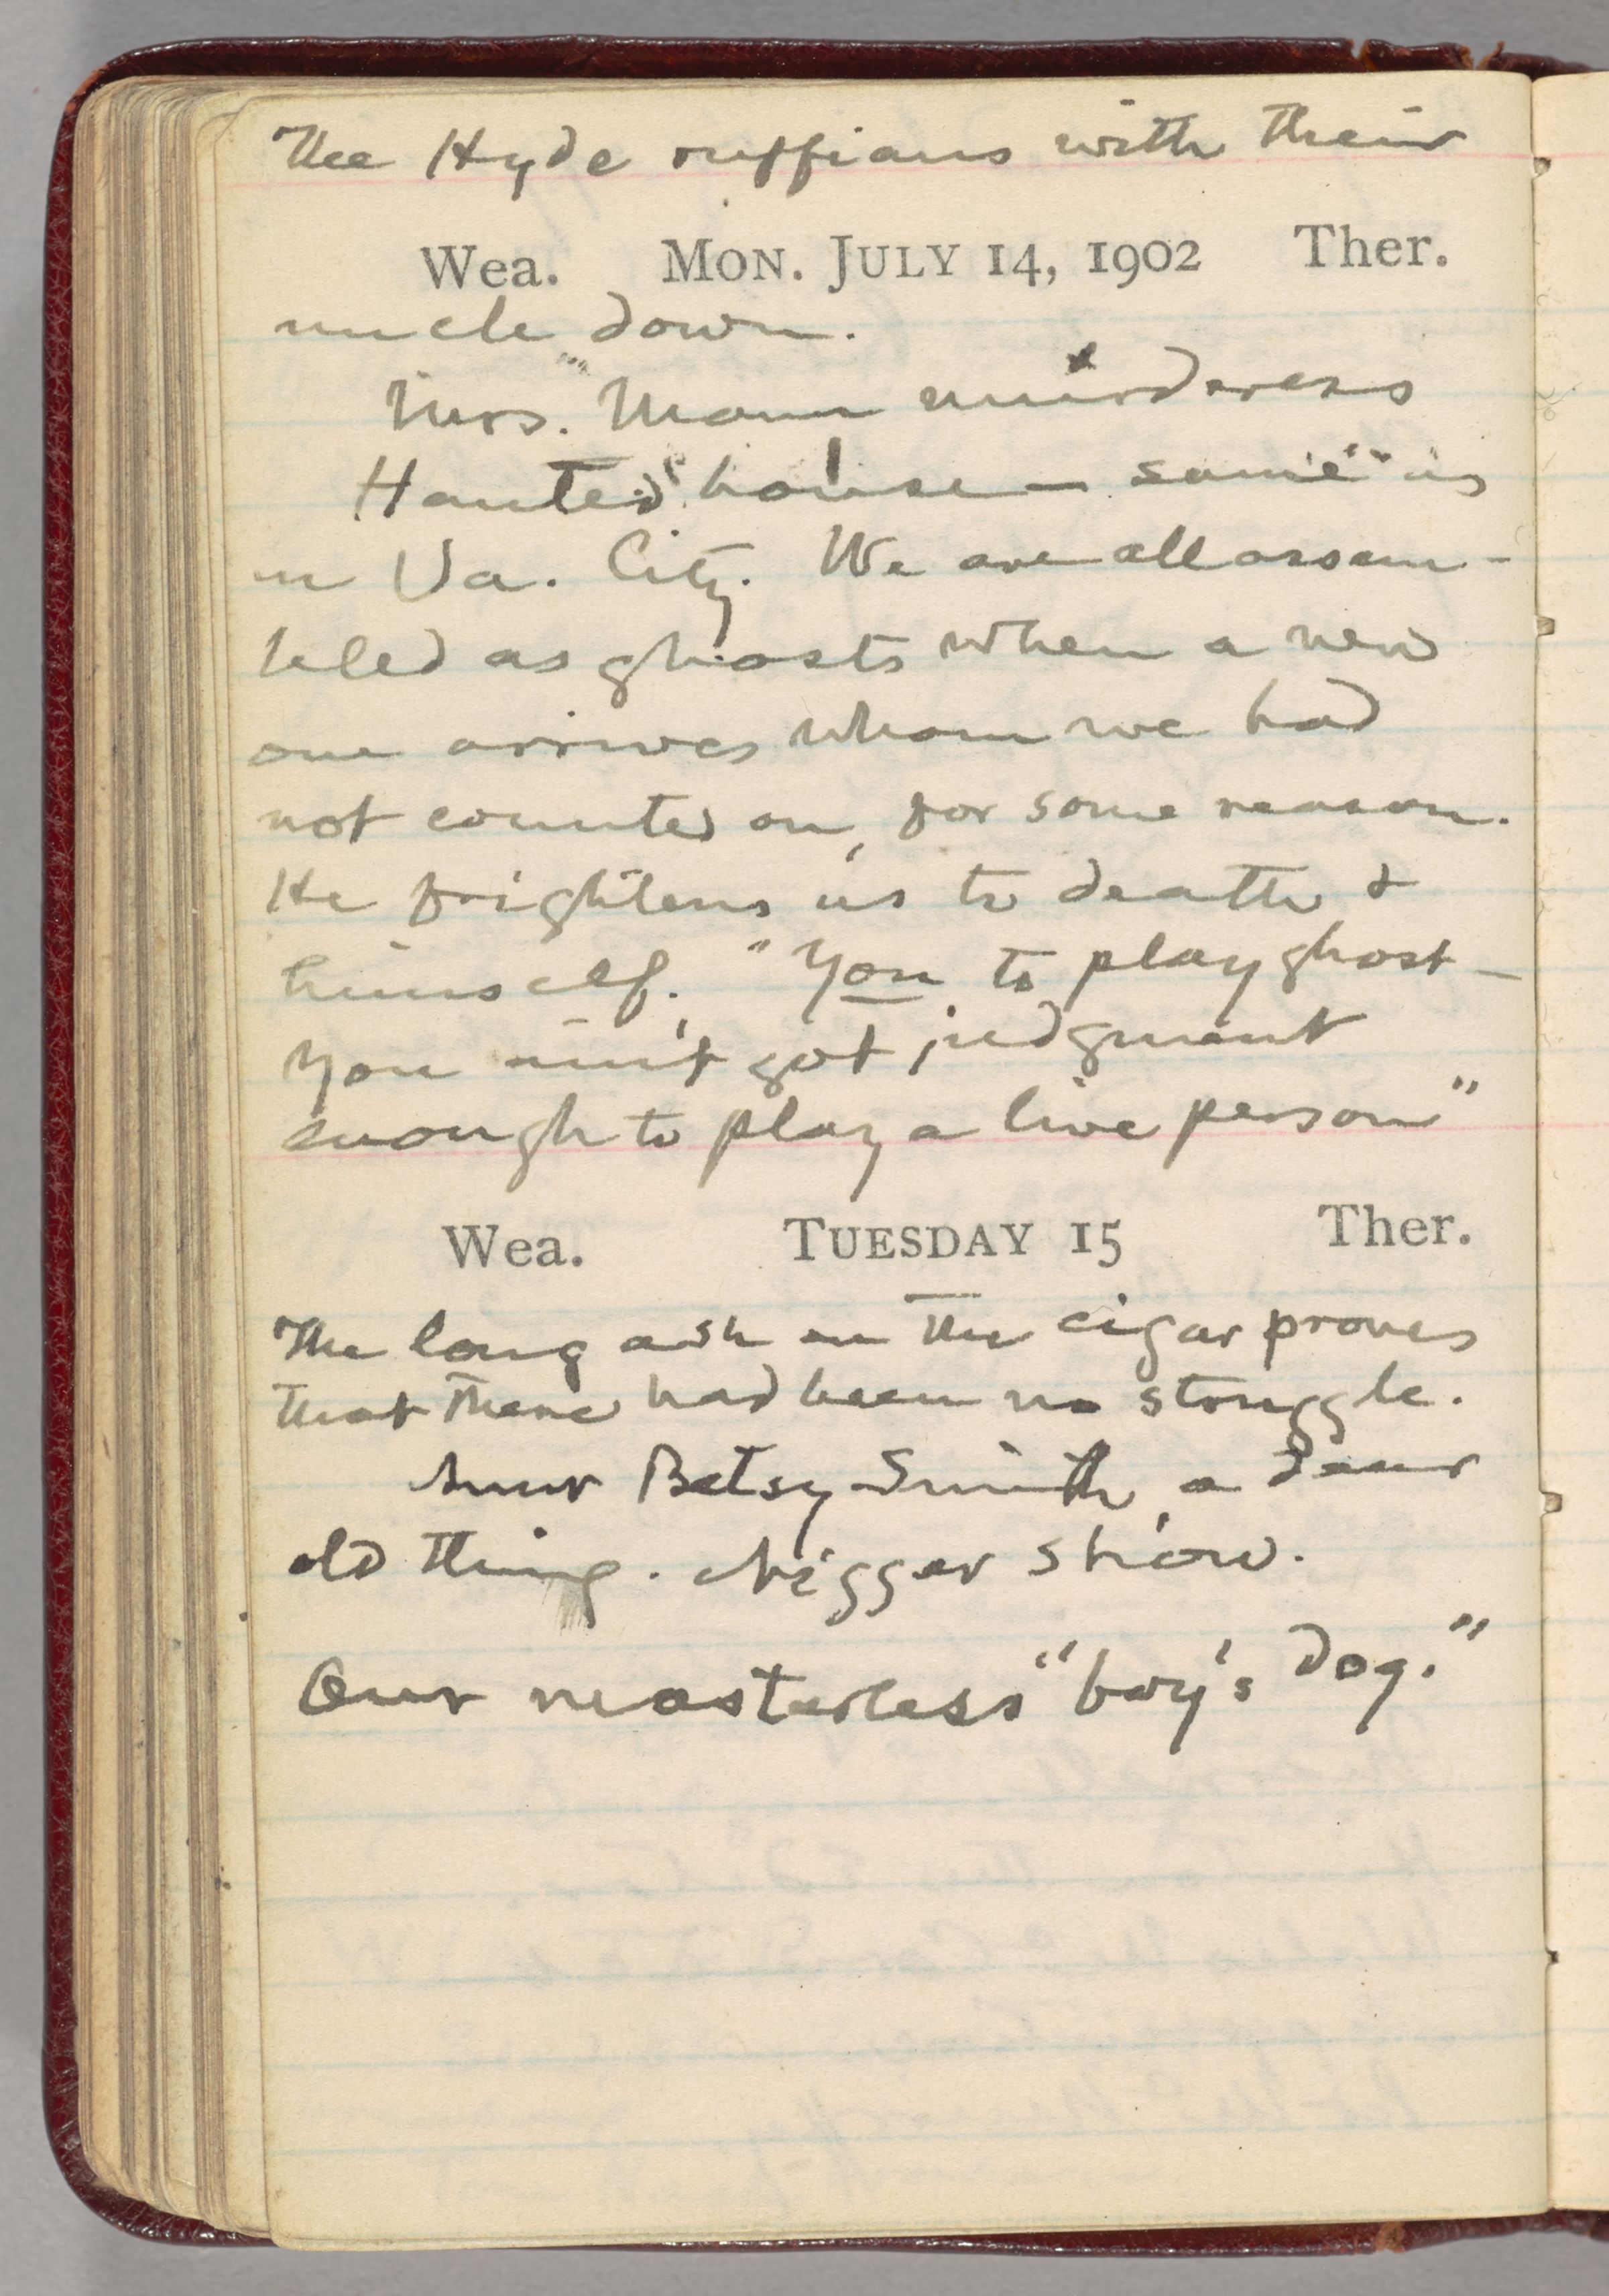 The Hyde ruffians with their
Wea. Mon. July 14, 1902 Ther.
uncle down.
Mrs. Mann murderess
Hanted house — same as
in Va. City. We are all assem-
bled as ghosts when a new
one arrives whom we had
not counted on, for some reason.
He frightens us to death &
himself. "You to play ghost —
you ain't got judgment
enough to play a live person"
Wea. Tuesday 15 Ther.
The long ash on the cigar proves
that there had been no struggle.
Aunt Betsy Smith, a dear
old thing. Nigger show.
Our masterless "boy's dog."